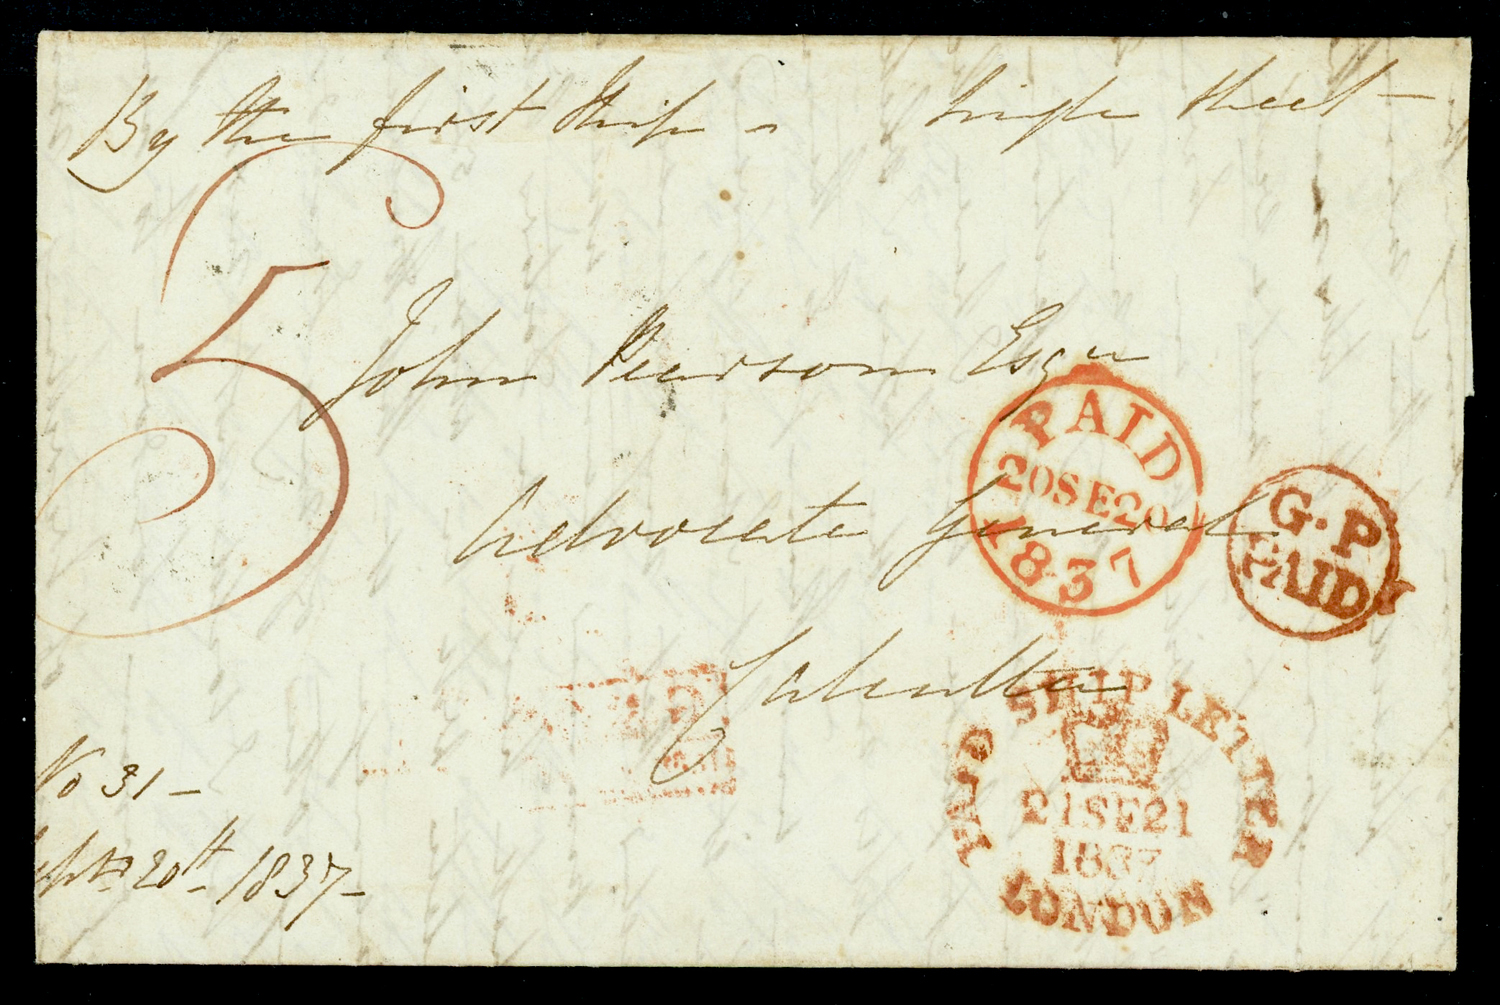 By the first Ship - Single Sheet -
5
John Pearson Esqre
PAID
20SE20
1837
Advocate General
G.P
PAID
Calcutta
PAID SHIP LETTER
21SE21
1837
LONDON
No 31 -
Septr 20th 1837 -